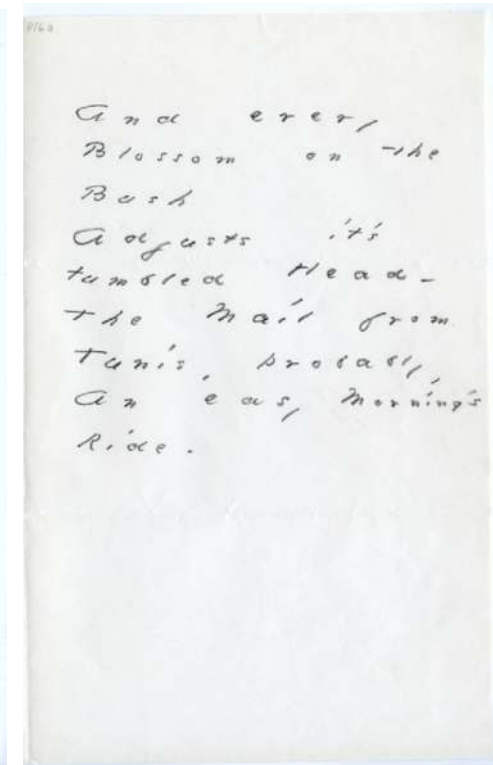 And every
Blossom on the
Bush
Adjusts it's
tumbled Head -
The Mail from
Tunis, probably,
An easy Morning's
Ride.